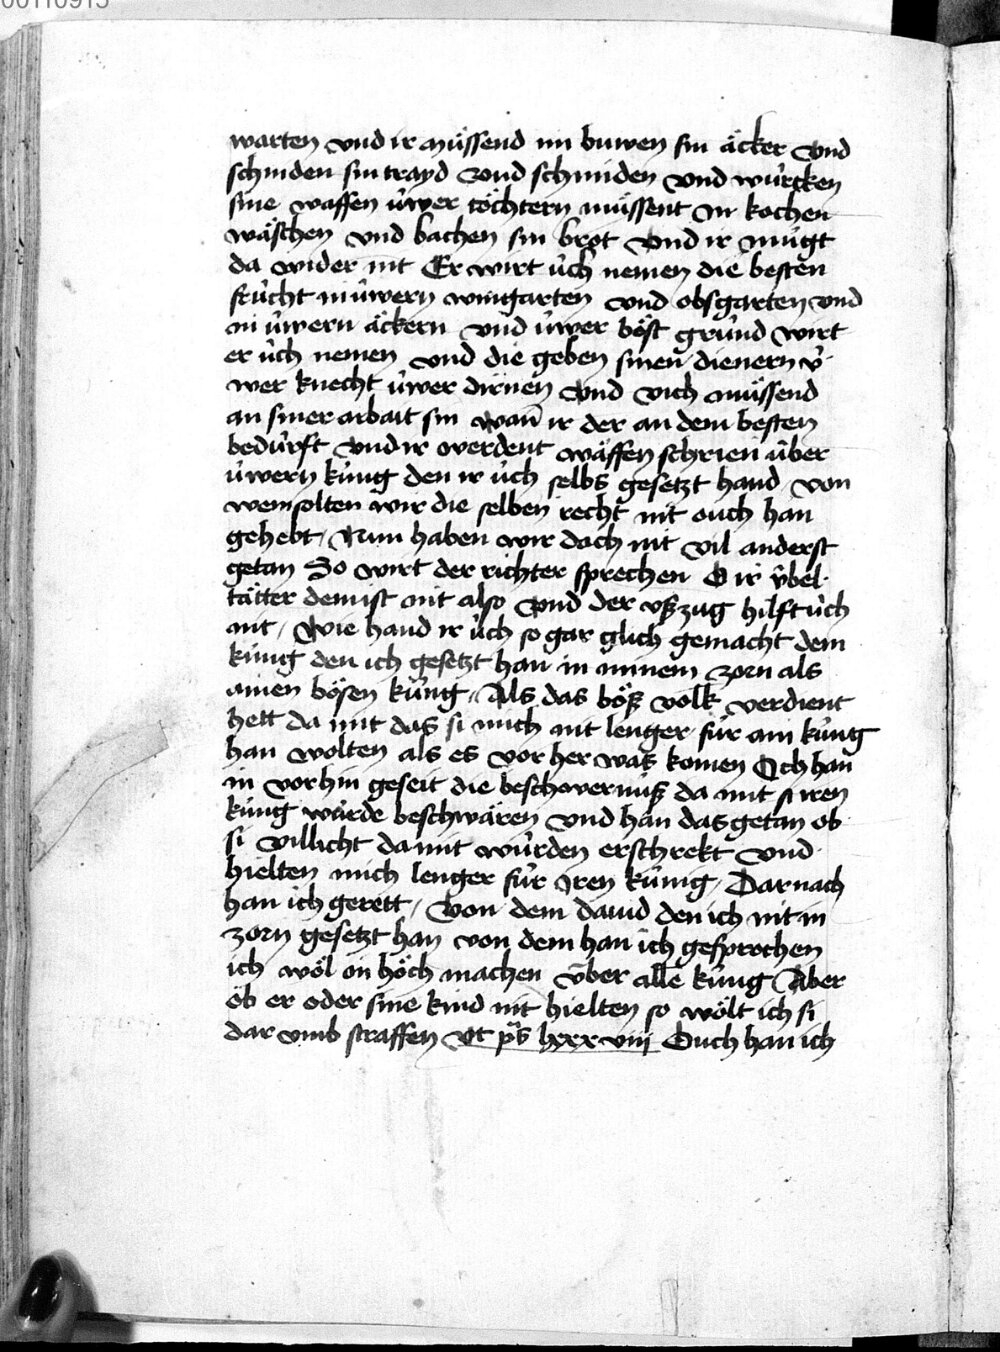 00110913
warten vnd ir müssend im buwen sin äcker vnd
schniden sin trayd vnd schmiden vnd würcken
sine waffen üwer töchtern müssent im kochen
wäschen vnd bachen sin brot vnd ir mügt
da wider nit Er wirt üch nemen die besten
frücht in üwern wingarten vnd obsgarten vnd
in üwern äckern vnd üwer böst grund wirt
er üch nemen vnd die geben sinen dienern ü-
wer knecht üwer dirnen vnd vich müssend
an siner arbait sin wan̄ ir der an dem besten
bedürft vnd ir werdent wäffen schrien über
üwern küng den ir üch selbs gesetzt hand von
wem solten wir die selben recht nit ouch han
gehebt / Nun haben wir doch nit vil anderst
getan So wirt der richter sprechen O ir übel-
tätter dem ist nit also vnd der vßzug hilft üch
nit / Wie hand ir üch so gar glich gemacht dem
küng den ich gesetzt han in minem zorn als
ainen bösen küng / Als das böß volk verdient
hett da mit das si mich nit lenger für ain küng
han wolten als es vor her waß komen Och han
in vorhin geseit die beschwernuß da mit si iren
küng würde beschwären vnd han das getan ob
si villicht da mit würden erschrekt vnd
hielten mich lenger für iren künig / Darnach
han ich gerett / Von dem dauid den ich nit in
zorn gesetzt han von dem han ich gesprochen
ich wöl in höch machen über alle küng Aber
ob er oder sine kind nit hielten so wölt ich si
dar vmb straffen vt ps lxxxviii Ouch han ich